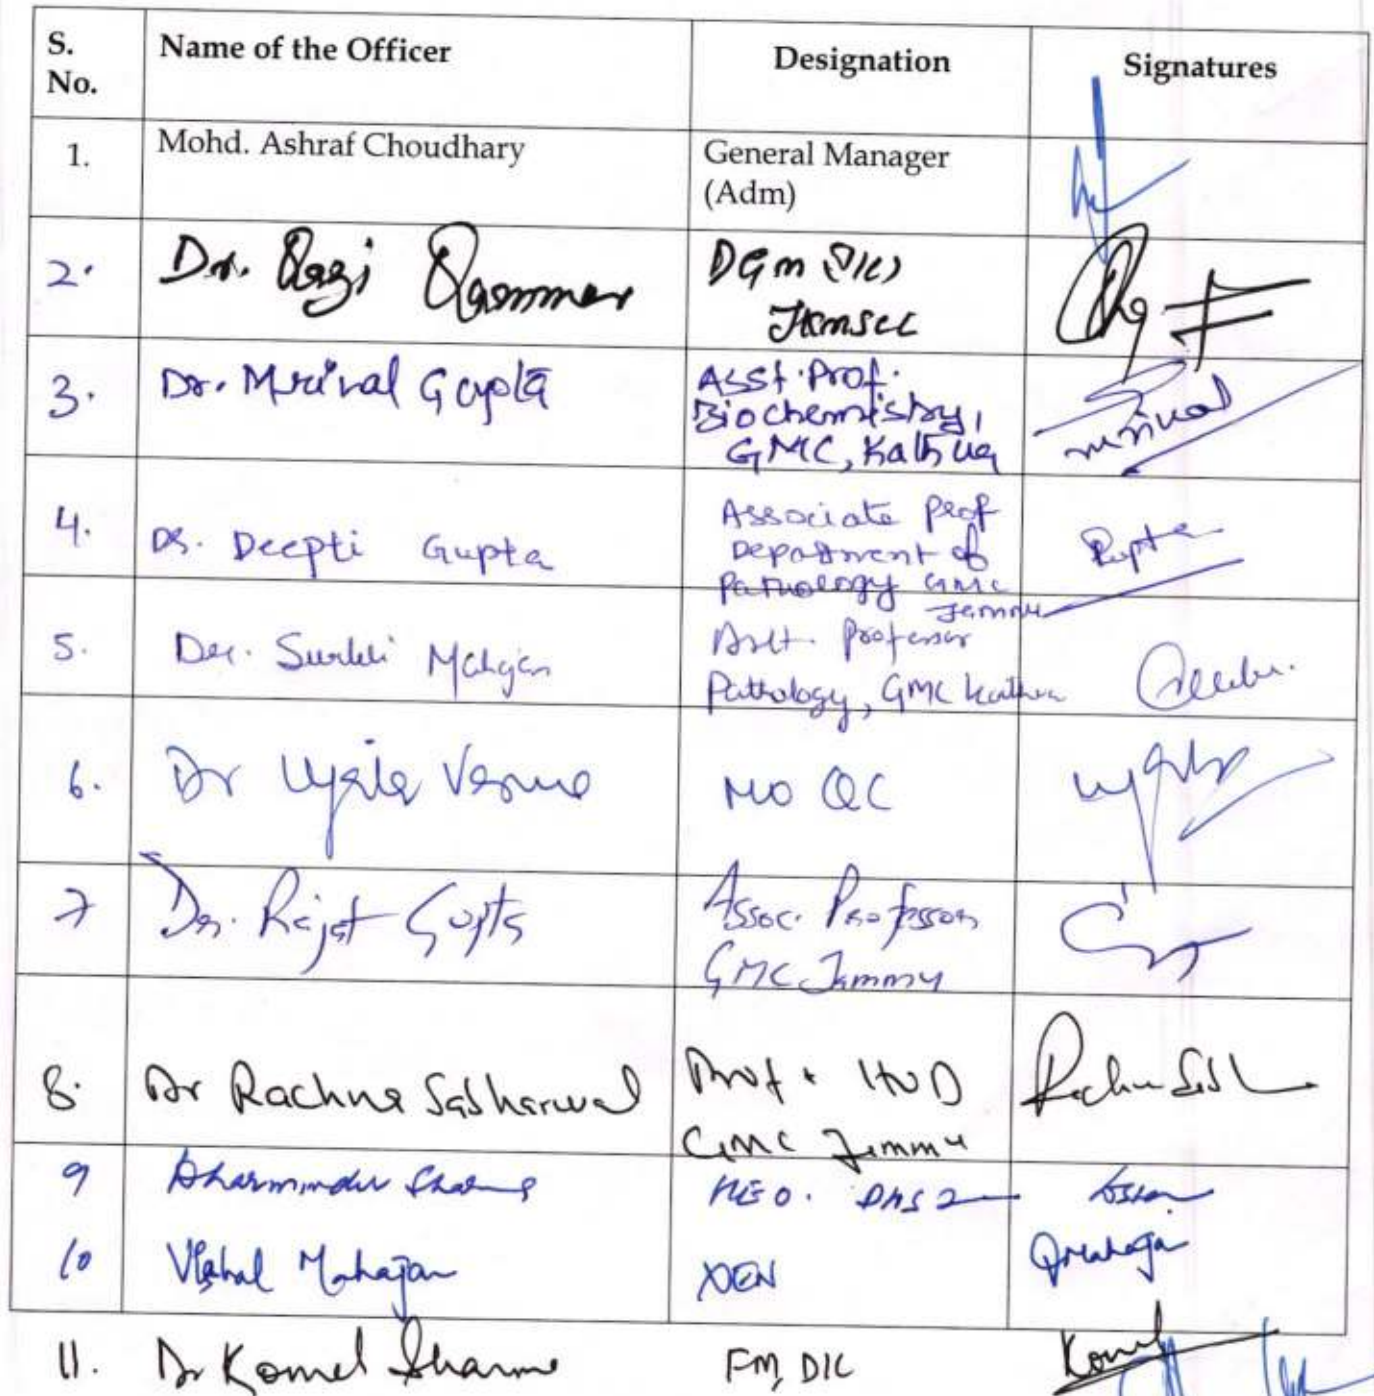 S. No. Name of the Officer Designation Signatures
1. Mohd. Ashraf Choudhary General Manager
(Adm)
2. Dr. Qazi Qammer DGM
JKMSCL
3. Dr. Mrinal Gupta Asst. Prof.
Biochemistry,
GMC, Kathua Mrinal
4. Dr. Deepti Gupta Associate Prof
Department of
Pathology GMC
Jammu Gupta
5. Dr. Surbhi Mahajan Asst. Professor
Pathology, GMC Kathua
6. Dr Ujala Verma MO QC
7 Dr. Rajat Gupta Assoc. Professor
GMC Jammu
8. Dr Rachna Sabharwal Prof + HOD
GMC Jammu
9 Dharminder Sharma
10 Vishal Mahajan XEN
11. Dr Komal Sharma FM, DIC Komal